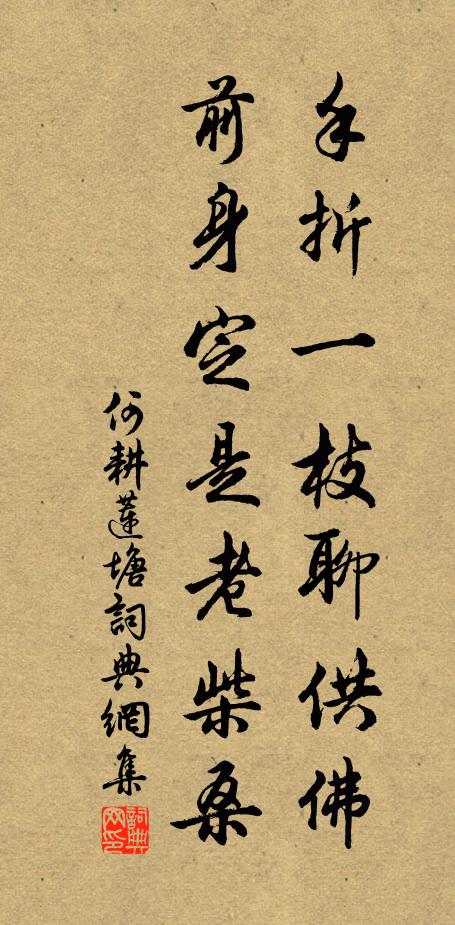 手折一枝聊供佛
前身定是老柴桑
何耕蓮塘詞典網集
詞典网印